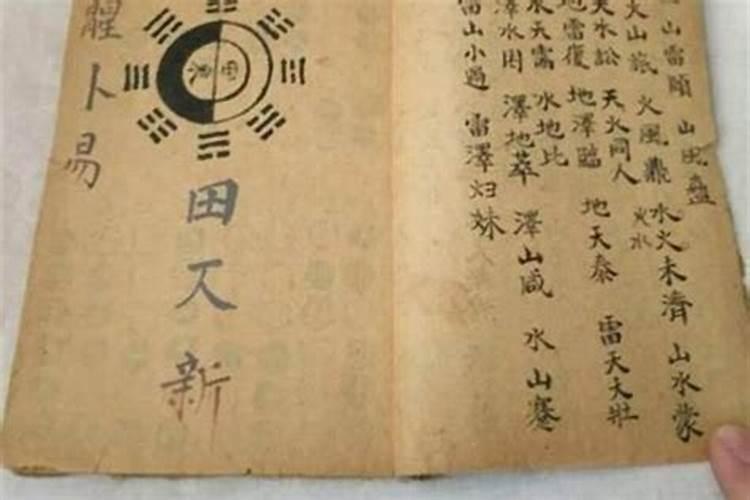 山雷頤 山風蠱
火山旅 火風鼎 水火未濟 山水蒙
火水
天水訟 天火同人
地雷復 地澤臨 地天泰 雷天大壯
水天需 水地比
澤水困 澤地萃 澤山咸 水山蹇
雷山小過 雷澤归妹
田
田人新
卜易